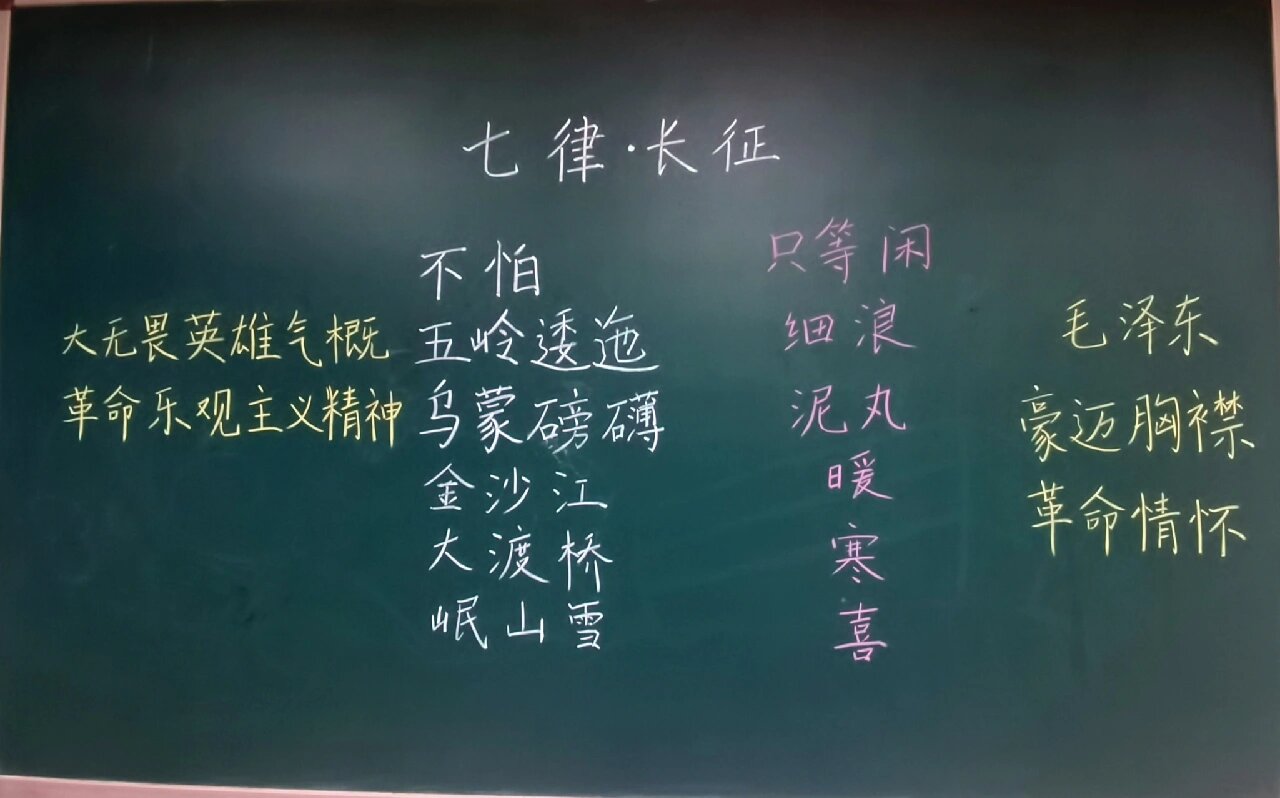 七律·长征
大无畏英雄气概
革命乐观主义精神
不怕
五岭逶迤
乌蒙磅礴
金沙江
大渡桥
岷山雪
只等闲
细浪
泥丸
暖
寒
喜
毛泽东
豪迈胸襟
革命情怀